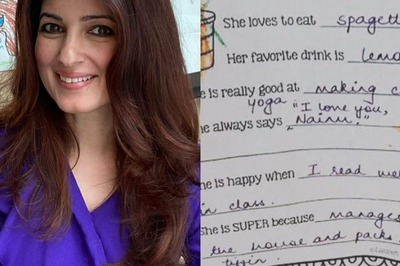 She loves to eat spagett
Her favorite drink is lemo
e is really good at making c
yoga "I love you,
he always says Nainu."
he is happy when I read we
in class.
She is SUPER because manages
the house and packs
tiffin